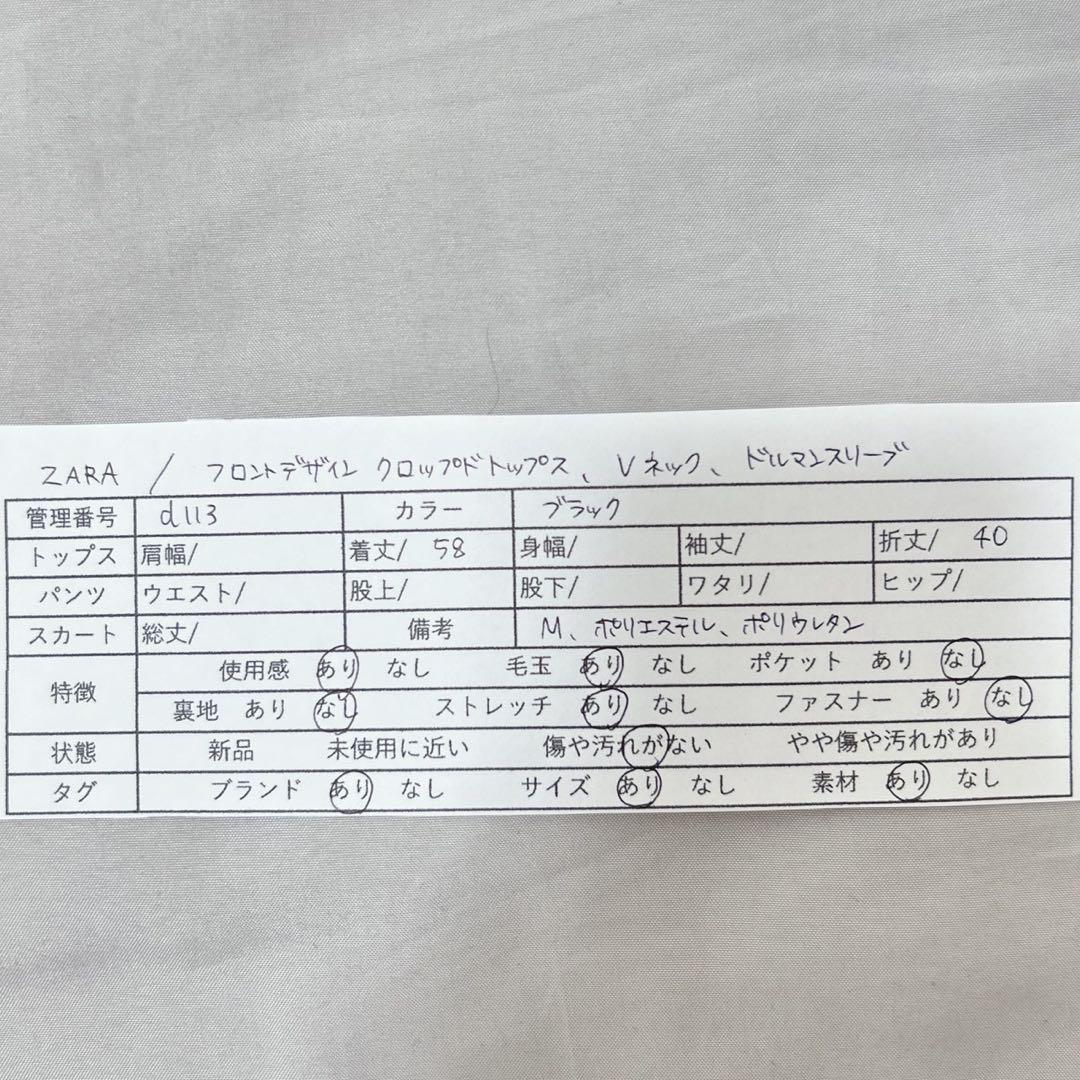 ZARA / フロントデザイン クロップドトップス、Vネック、ドルマンスリーブ
管理番号 d113 カラー ブラック
トップス 肩幅/ 着丈/ 58 身幅/ 袖丈/ 折丈/ 40
パンツ ウエスト/ 股上/ 股下/ ワタリ/ ヒップ/
スカート 総丈/ 備考 M、ポリエステル、ポリウレタン
特徴 使用感 あり なし 毛玉 あり なし ポケット あり なし
裏地 あり なし ストレッチ あり なし ファスナー あり なし
状態 新品 未使用に近い 傷や汚れがない やや傷や汚れがあり
タグ ブランド あり なし サイズ あり なし 素材 あり なし